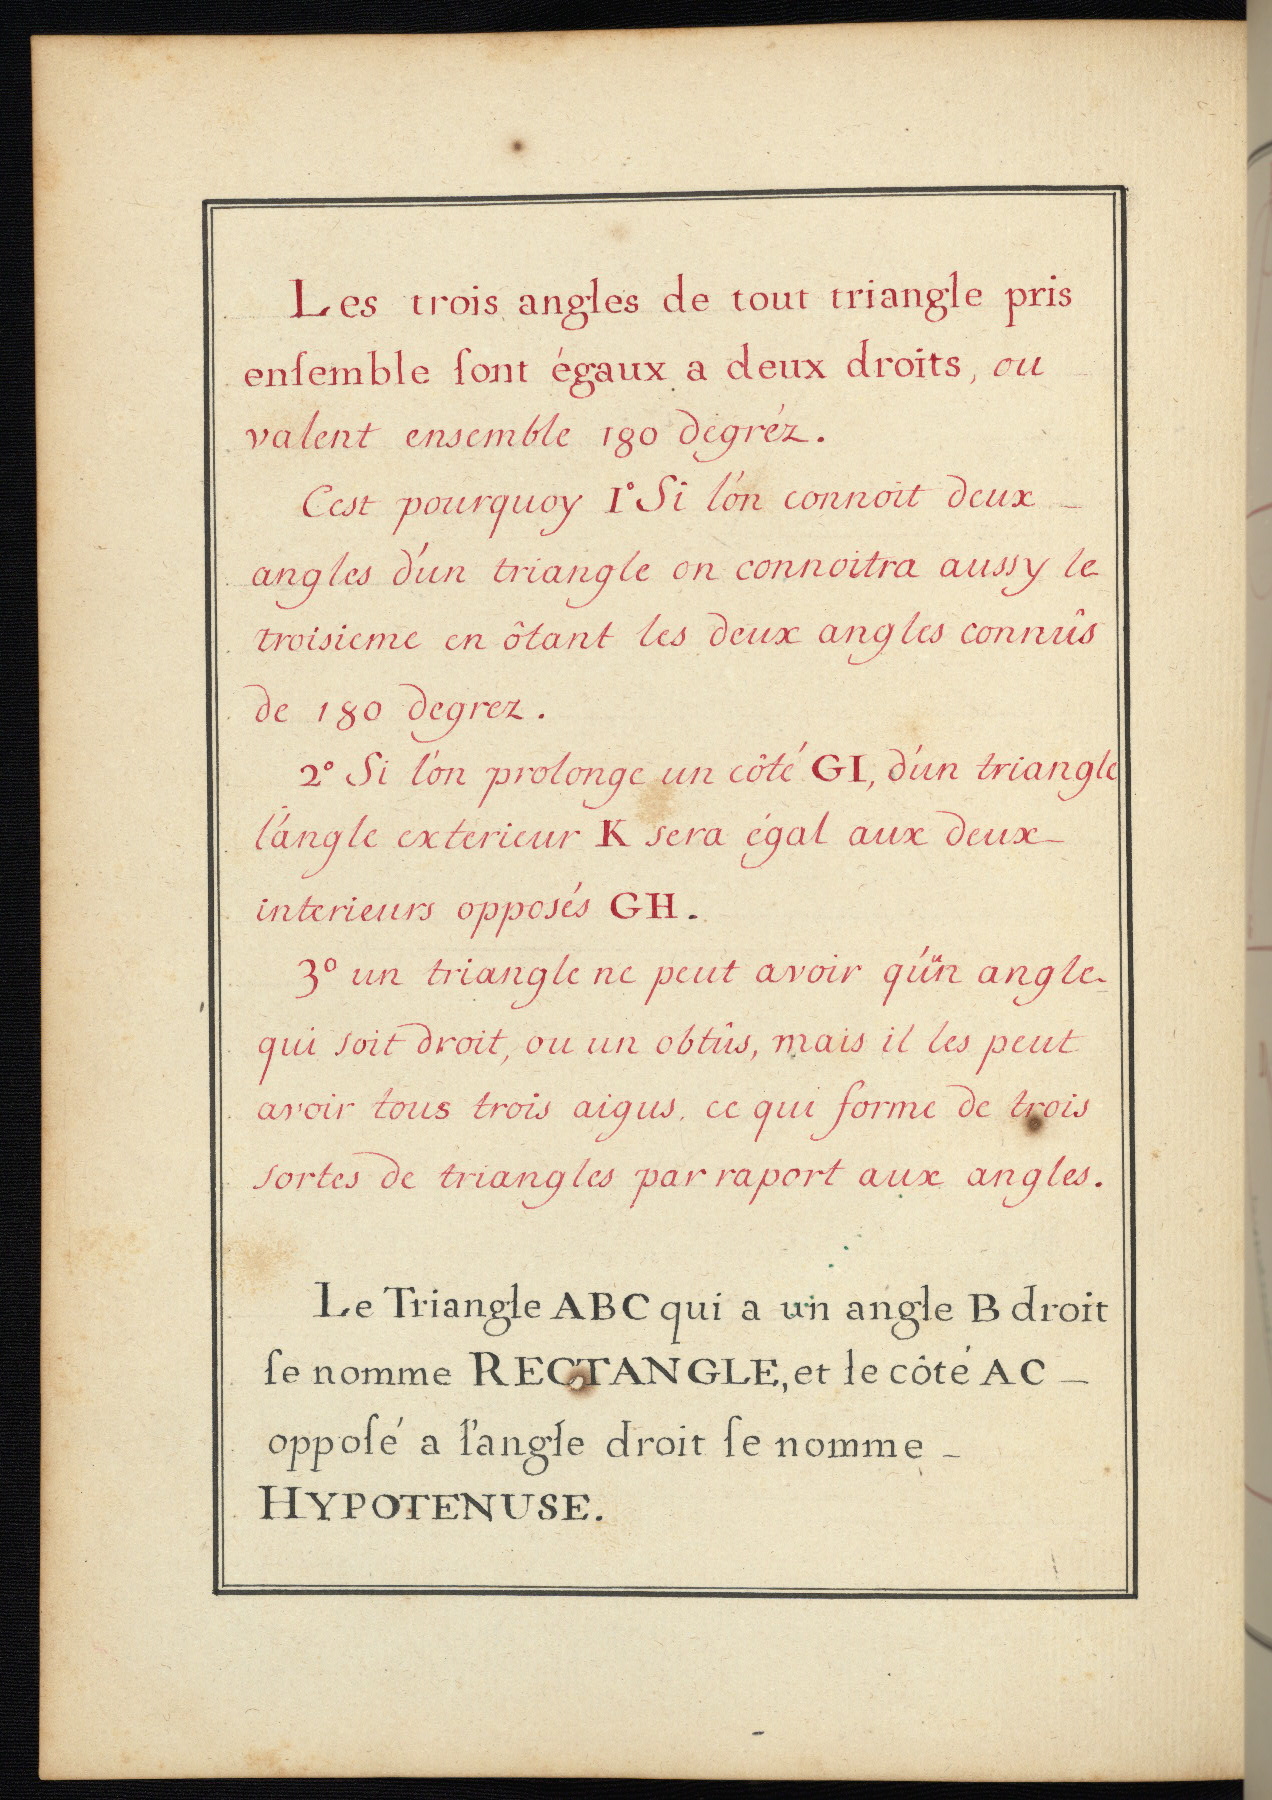 Les trois angles de tout triangle pris
enſemble ſont égaux a deux droits, ou
valent ensemble 180 degréz.
Cest pourquoy 1° Si l'on connoit deux
angles d'un triangle on connoitra aussy le
troisieme en ôtant les deux angles connûs
de 180 degrez.
2° Si l'on prolonge un côté GI, d'un triangle
l'angle exterieur K sera égal aux deux
interieurs opposés GH.
3° un triangle ne peut avoir qu'ün angle
qui soit droit, ou un obtûs, mais il les peut
avoir tous trois aigus. ce qui forme de trois
sortes de triangles par raport aux angles.
Le Triangle ABC qui a un angle B droit
ſe nomme RECTANGLE, et le côté AC –
oppoſé a l'angle droit ſe nomme –
HYPOTENUSE.